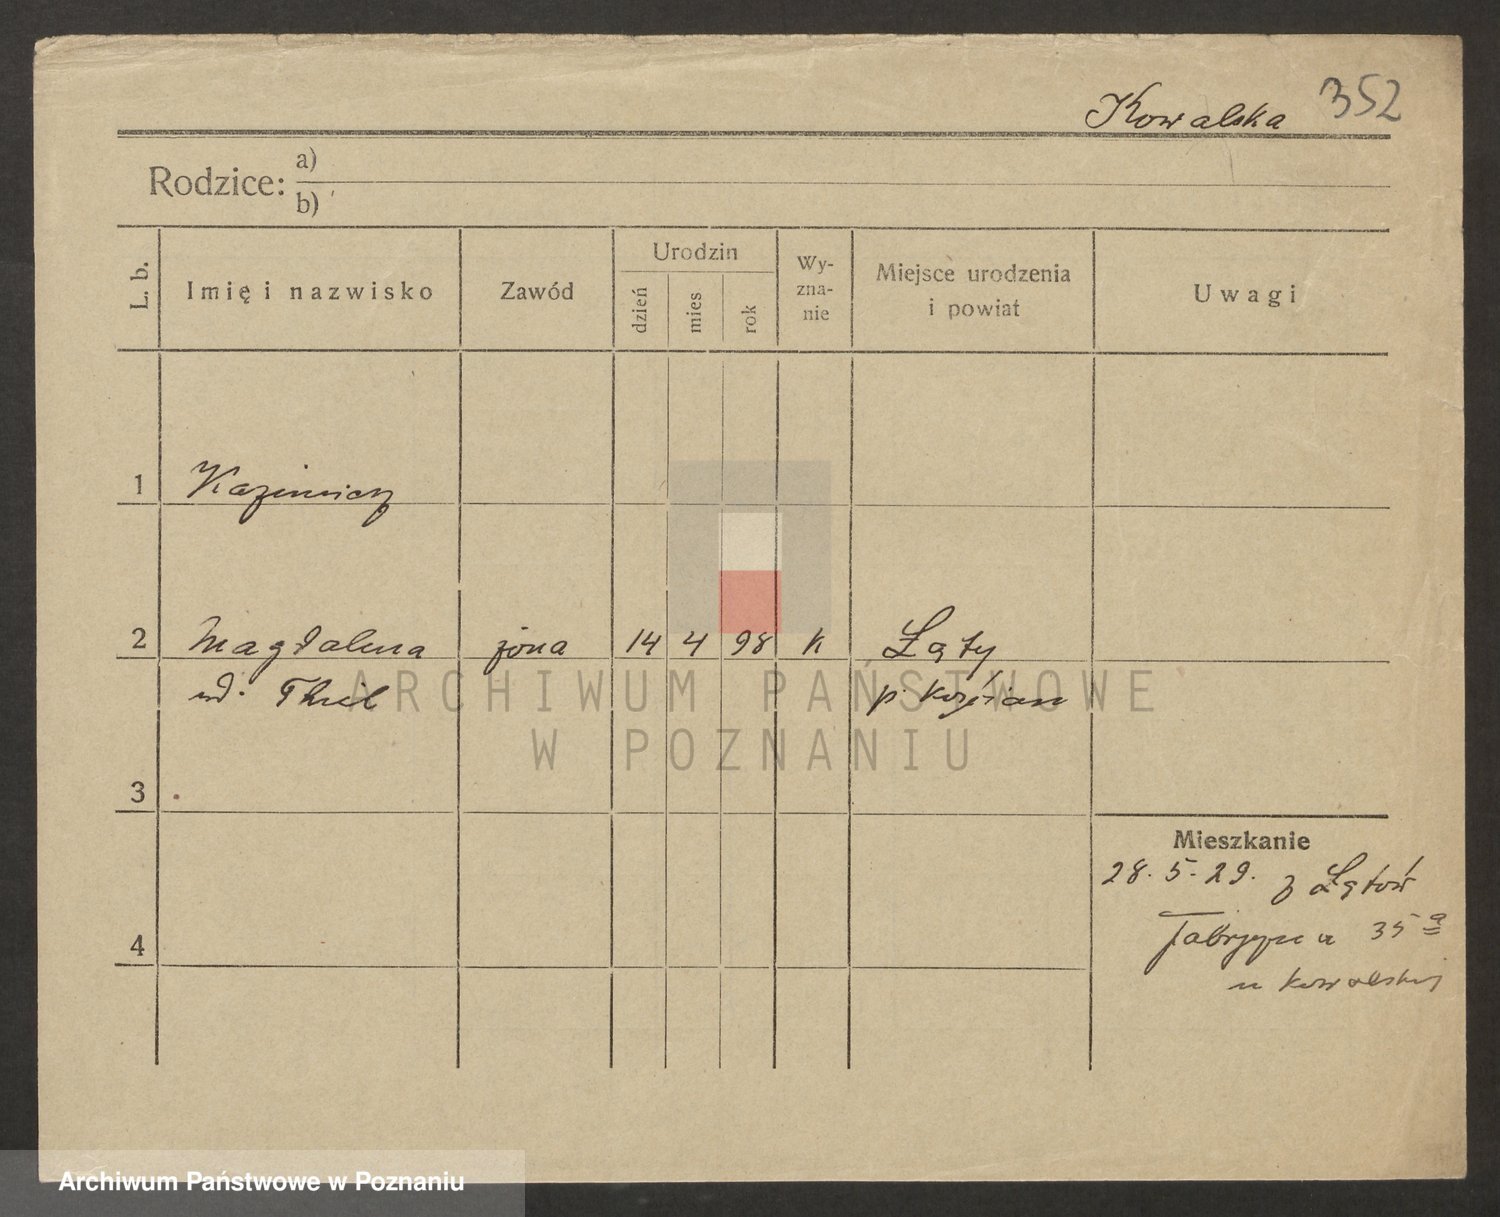 Kowalska 352
Rodzice: a)
b)
L. b.
Imię i nazwisko
Zawód
Urodzin
dzień
mies
rok
Wy-
zna-
nie
Miejsce urodzenia
i powiat
Uwagi
1 Kazimierz
2 Magdalena żona 14 4 98 k Łąty
ud. Thiel p. Kościan
ARCHIWUM PAŃSTWOWE
W POZNANIU
3
Mieszkanie
28. 5. 29. z Łątów
Fabryczna 35 a
4
u Kowalskiej
Archiwum Państwowe w Poznaniu